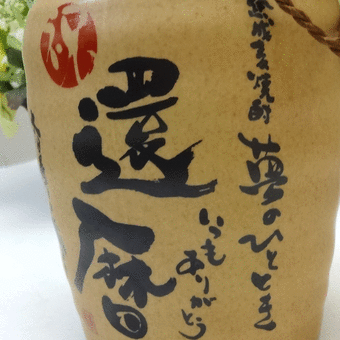 熟成麦焼酎
夢のひととき
還暦
いつも
ありがとう